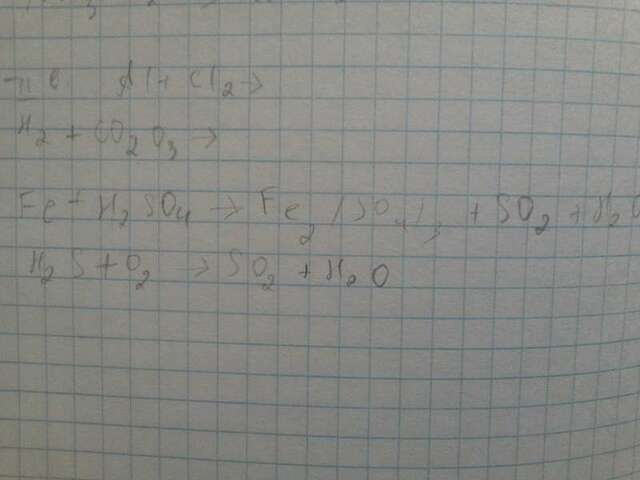 Al + Cl₂ →
H₂ + CO₂O₃ →
Fe + H₂SO₄ → Fe₂(SO₄)₃ + SO₂ + H₂O
H₂S + O₂ → SO₂ + H₂O